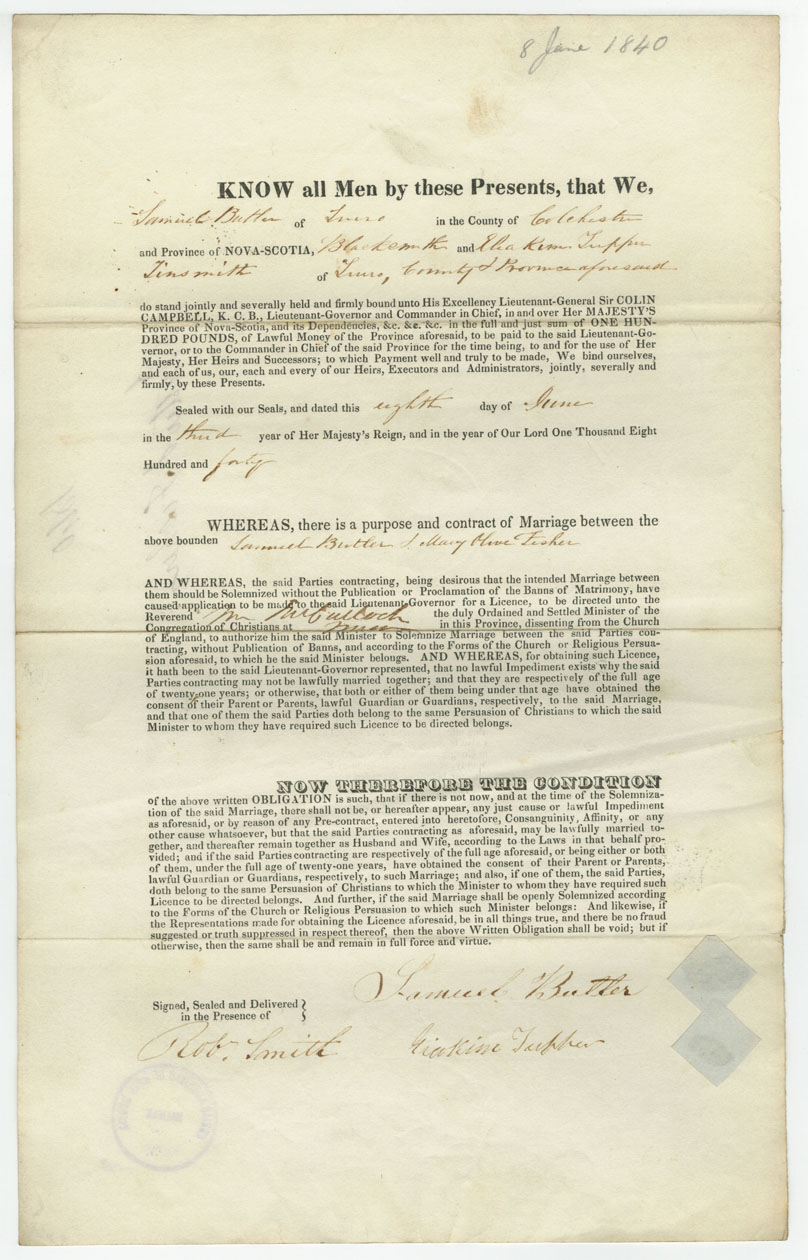 8 June 1840
KNOW all Men by these Presents, that We,
Samuel Butler of Truro in the County of Colchester
and Province of NOVA-SCOTIA, Blacksmith and Eliakim Tupper
Tinsmith of Truro, County & Province aforesaid
do stand jointly and severally held and firmly bound unto His Excellency Lieutenant-General Sir COLIN
CAMPBELL, K. C. B., Lieutenant-Governor and Commander in Chief, in and over Her MAJESTY'S
Province of Nova-Scotia, and its Dependencies, &c. &c. &c. in the full and just sum of ONE HUN-
DRED POUNDS, of Lawful Money of the Province aforesaid, to be paid to the said Lieutenant-Go-
vernor, or to the Commander in Chief of the said Province for the time being, to and for the use of Her
Majesty, Her Heirs and Successors; to which Payment well and truly to be made, We bind ourselves,
and each of us, our, each and every of our Heirs, Executors and Administrators, jointly, severally and
firmly, by these Presents.
Sealed with our Seals, and dated this eighth day of June
in the third year of Her Majesty's Reign, and in the year of Our Lord One Thousand Eight
Hundred and forty
WHEREAS, there is a purpose and contract of Marriage between the
above bounden Samuel Butler & Mary Olive Fisher
AND WHEREAS, the said Parties contracting, being desirous that the intended Marriage between
them should be Solemnized without the Publication or Proclamation of the Banns of Matrimony, have
caused application to be made to the said Lieutenant-Governor for a Licence, to be directed unto the
Reverend Wm McCulloch the duly Ordained and Settled Minister of the
Congregation of Christians at Truro in this Province, dissenting from the Church
of England, to authorize him the said Minister to Solemnize Marriage between the said Parties con-
tracting, without Publication of Banns, and according to the Forms of the Church or Religious Persua-
sion aforesaid, to which he the said Minister belongs. AND WHEREAS, for obtaining such Licence,
it hath been to the said Lieutenant-Governor represented, that no lawful Impediment exists why the said
Parties contracting may not be lawfully married together; and that they are respectively of the full age
of twenty-one years; or otherwise, that both or either of them being under that age have obtained the
consent of their Parent or Parents, lawful Guardian or Guardians, respectively, to the said Marriage,
and that one of them the said Parties doth belong to the same Persuasion of Christians to which the said
Minister to whom they have required such Licence to be directed belongs.
NOW THEREFORE THE CONDITION
of the above written OBLIGATION is such, that if there is not now, and at the time of the Solemniza-
tion of the said Marriage, there shall not be, or hereafter appear, any just cause or lawful Impediment
as aforesaid, or by reason of any Pre-contract, entered into heretofore, Consanguinity, Affinity, or any
other cause whatsoever, but that the said Parties contracting as aforesaid, may be lawfully married to-
gether, and thereafter remain together as Husband and Wife, according to the Laws in that behalf pro-
vided; and if the said Parties contracting are respectively of the full age aforesaid, or being either or both
of them, under the full age of twenty-one years, have obtained the consent of their Parent or Parents,
lawful Guardian or Guardians, respectively, to such Marriage; and also, if one of them, the said Parties,
doth belong to the same Persuasion of Christians to which the Minister to whom they have required such
Licence to be directed belongs. And further, if the said Marriage shall be openly Solemnized according
to the Forms of the Church or Religious Persuasion to which such Minister belongs: And likewise, if
the Representations made for obtaining the Licence aforesaid, be in all things true, and there be no fraud
suggested or truth suppressed in respect thereof, then the above Written Obligation shall be void; but if
otherwise, then the same shall be and remain in full force and virtue.
Samuel Butler
Signed, Sealed and Delivered
in the Presence of
Robt. Smith Eliakim Tupper